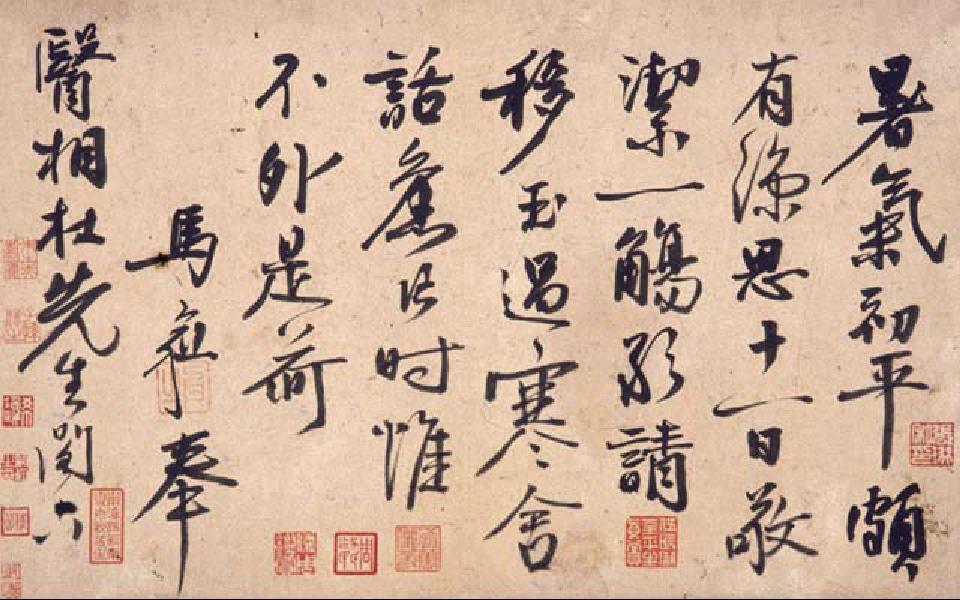 暑氣初平頗
有涼思十一日敬
潔一觴敢請
移玉過寒舍
話舊片時惟
不外是荷
馬
奉
醫相杜先生閣下